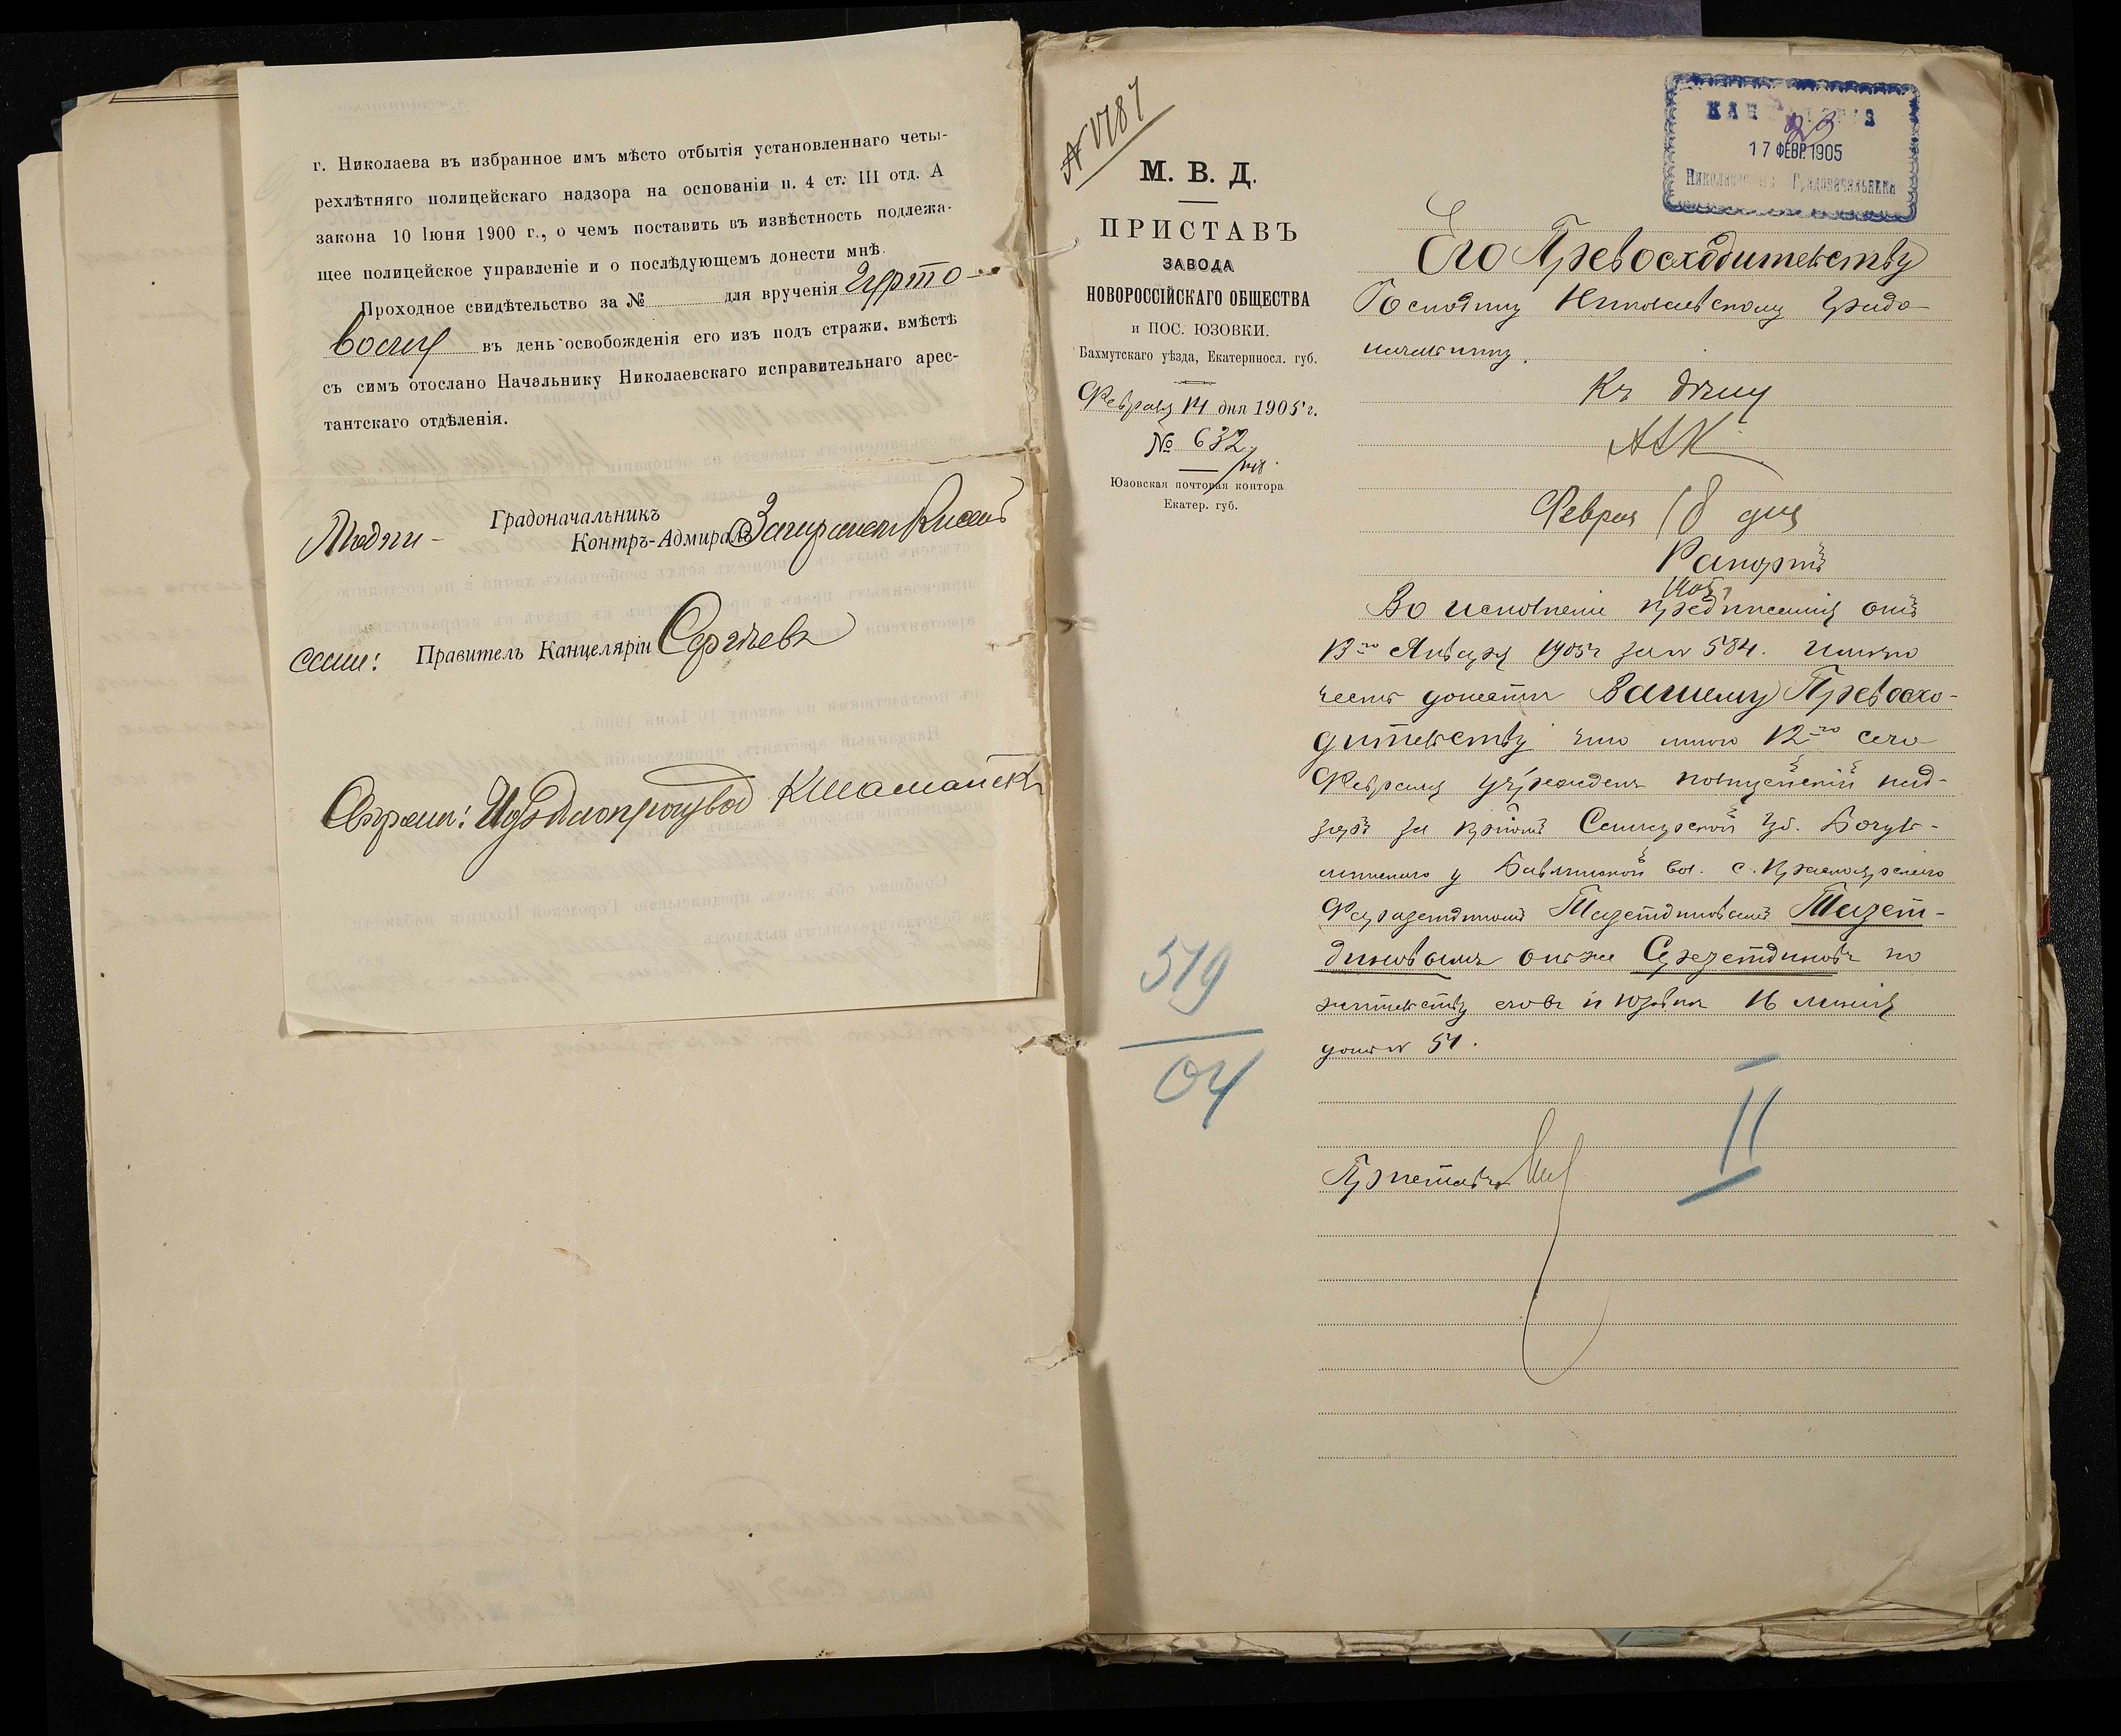 г. Николаева въ избранное имъ мѣсто отбытія установленнаго четы-
рехлѣтняго полицейскаго надзора на основаніи п. 4 ст. III отд. А
закона 10 Іюня 1900 г., о чемъ поставить въ извѣстность подлежа-
щее полицейское управленіе и о послѣдующемъ донести мнѣ.
Проходное свидѣтельство за № для врученія Чурто-
восму въ день освобожденія его изъ подъ стражи, вмѣстѣ
съ симъ отослано Начальнику Николаевскаго исправительнаго арес-
тантскаго отдѣленія.
Подпи-
Градоначальникъ
Контръ-Адмиралъ
сали: Правитель Канцеляріи Сергѣевъ
17 ФЕВР. 1905
Николаевскаго Градоначальника
М. В. Д.
ПРИСТАВЪ
ЗАВОДА
НОВОРОССІЙСКАГО ОБЩЕСТВА
и ПОС. ЮЗОВКИ.
Бахмутскаго уѣзда, Екатериносл. губ.
Февраля 14 дня 1905 г.
№ 632
Юзовская почтовая контора
Екатер. губ.
Его Превосходительству
Господину Николаевскому Градо-
начальнику.
Къ дѣлу
Февраля 18 дня
1905 г
Рапортъ
Во исполненіе предписанія отъ
13го Января 1905 г за № 584. имѣю
честь донести Вашему Превосхо-
дительству что мною 12го сего
Февраля учрежденъ полицейскій над-
зоръ за кр-номъ Самарской губ. Бугуль-
минскаго у Бавлинской вол. с. Красноярскаго
Тазет-
диновымъ онъ же по
жительству его въ п Юзовкѣ 16 линія
домъ № 51.
Приставъ
519
04
II